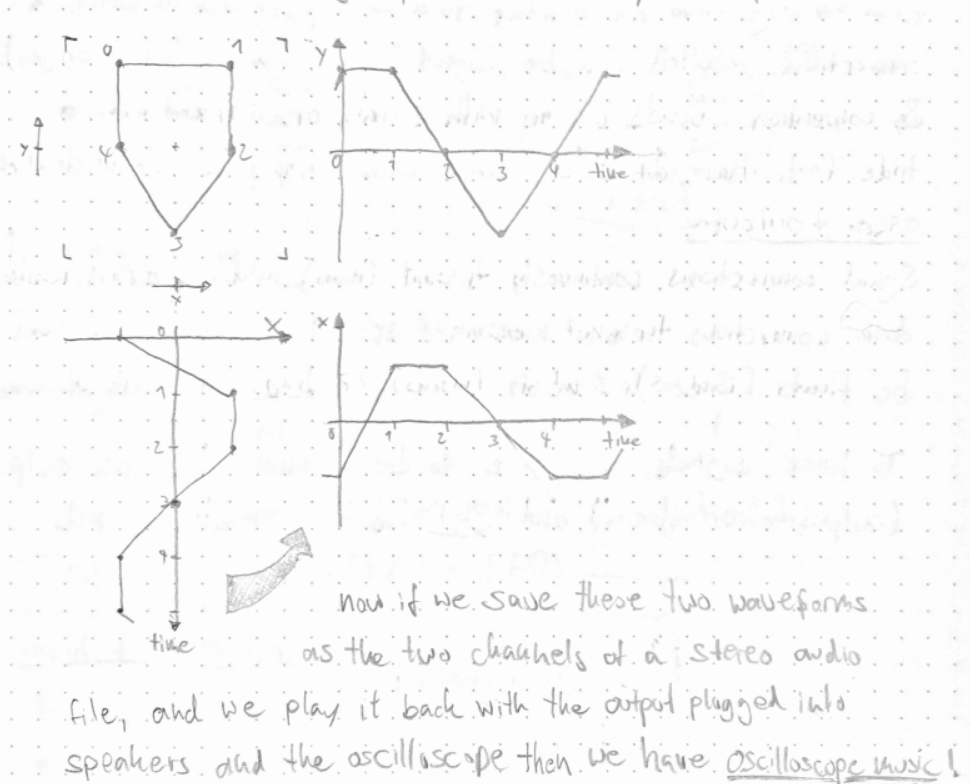 0 1
y
4 2
3
x
y
0 1 2 3 4 time
x
0
1
2
3
4
5
time
x
0 1 2 3 4 time
now if we save these two waveforms
as the two channels of a stereo audio
file, and we play it back with the output plugged into
speakers and the oscilloscope then we have oscilloscope music!